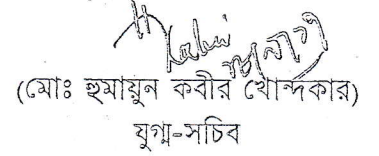 (মোঃ হুমায়ুন কবীর খোন্দকার)
যুগ্ম-সচিব